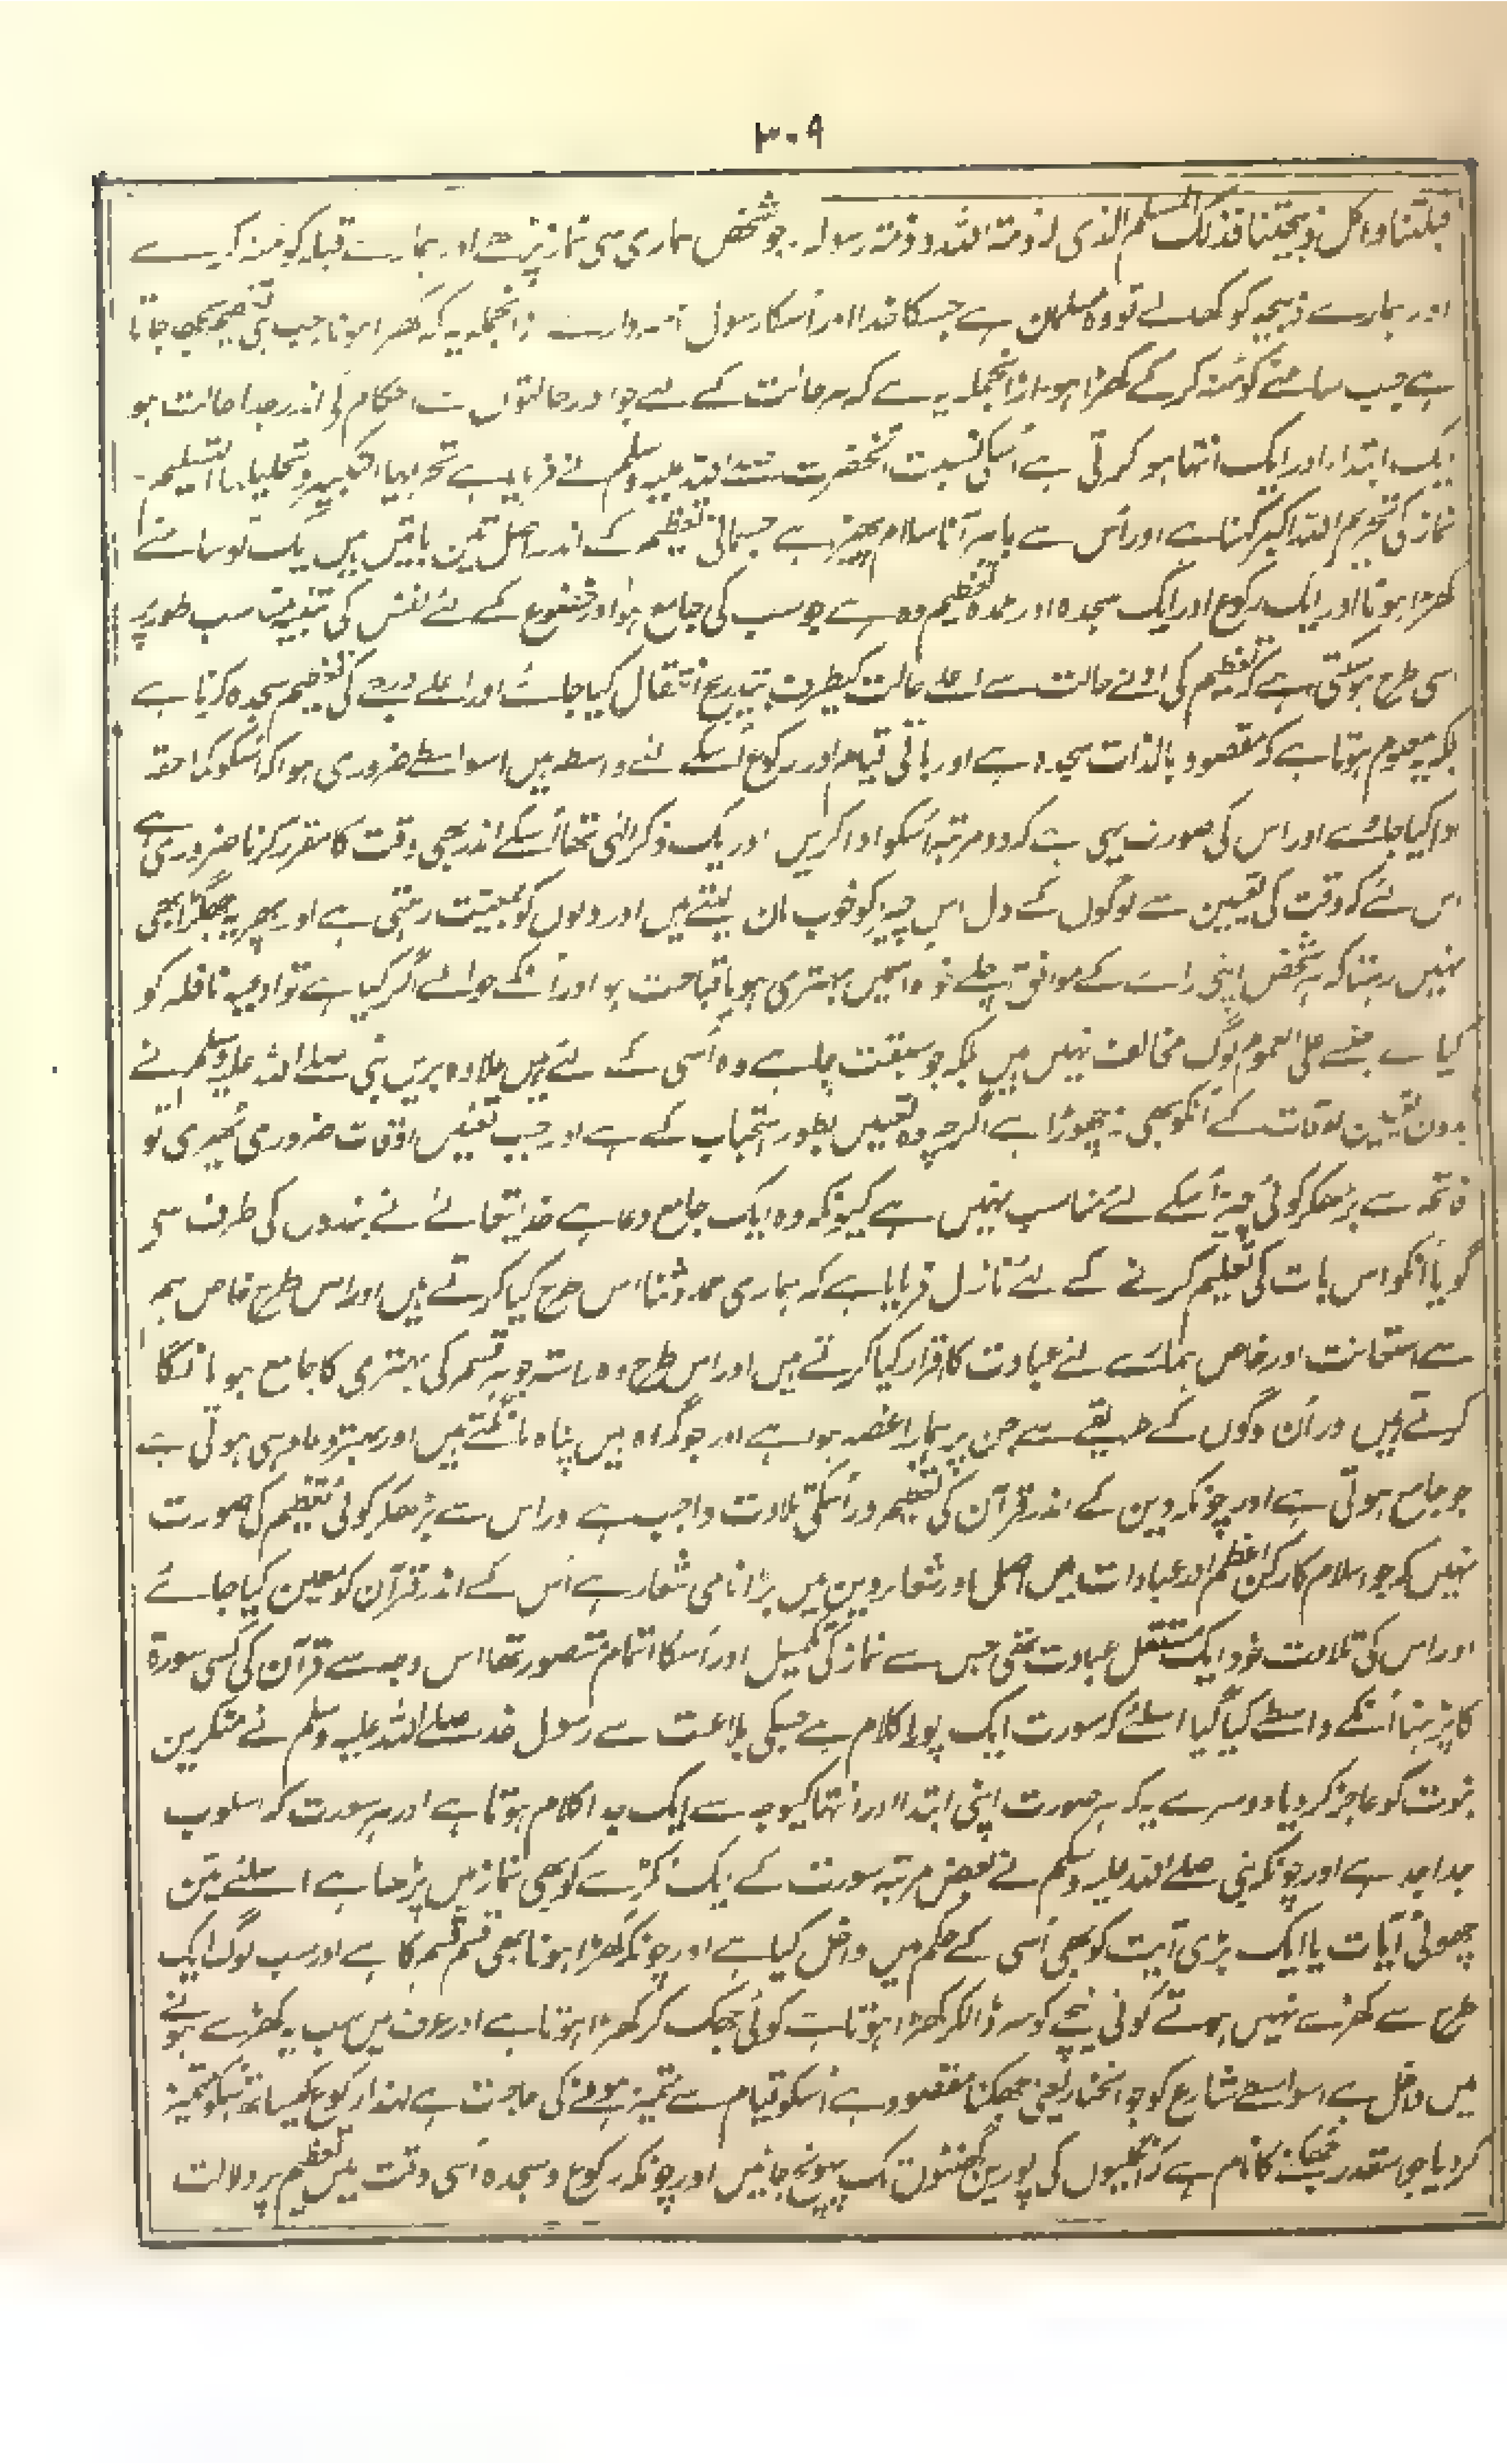 ۳۰۹
قبلتنا واکل ذبیحتنا فذلک المسلم الذی لہ ذمۃ اللہ و ذمۃ رسولہ ۔ جو شخص ہماری سی نماز پڑھے اور ہمارے قبلہ کو منہ کرے
اور ہمارے ذبیحہ کو کھالے تو وہ مسلمان ہے جسکا خدا اور اُسکا رسول ذمہ دار ہے ازانجملہ یہ کہ کھڑا ہونا جب ہی تعظیم سمجھا جاتا
ہے جب سامنے کو منہ کر کے کھڑا ہو ازانجملہ یہ ہے کہ ہر حالت کے لئے جو اور حالتوں سے احکام کے اندر جدا حالت ہو
ایک ابتدا اور ایک انتہا ہو کرتی ہے اُسکی نسبت آنحضرت صلے اللہ علیہ وسلم نے فرمایا ہے تحریمہا التکبیر و تحلیلہا التسلیم ۔
نماز کی تحریم اللہ اکبر کہنا ہے اور اُس سے باہر آنا سلام پھیرنا ہے جسمانی تعظیم کے اندر اصل تین باتیں ہیں ایک تو سامنے
کھڑا ہونا اور ایک رکوع اور ایک سجدہ اور عمدہ تعظیم وہ ہے جو سب کی جامع ہو اور خضوع کے لئے نفس کی تنبیہ مناسب طور پر
اسی طرح ہو سکتی ہے کہ تعظیم کی ادنے حالت سے اعلے حالت کیطرف بتدریج انتقال کیا جائے اور اعلے درجے کی تعظیم سجدہ کرنا ہے
بلکہ یہ معلوم ہوتا ہے کہ مقصود بالذات سجدہ ہے اور باقی قیام اور رکوع اُسکے لئے واسطہ ہیں اسواسطے ضروری ہوا کہ اُسکو کماحقہ
ادا کیا جائے اور اس کی صورت یہی ہے کہ دو مرتبہ اُسکو ادا کریں اور ایک ذکر الٰہی تھا اُسکے اندر بھی وقت کا مقرر کرنا ضروری ہے
اس لئے کہ وقت کی تعیین سے لوگوں کے دل اس چیز کو خوب مان لیتے ہیں اور دلوں کو جمعیت رہتی ہے اور پھر یہ جھگڑا بھی
نہیں رہتا کہ ہر شخص اپنی رائے کے موافق چلے خواہ اسمیں بہتری ہو یا قباحت ہو اور اُنکے حوالے اگر کیا ہے تو ادعیہ نافلہ کو
کیا ہے جنسے علی العموم لوگ مخالف نہیں ہیں بلکہ جو سبقت چاہے وہ اُسی کے لئے ہیں علاوہ بریں نبی صلے اللہ علیہ وسلم نے
بدون تعیین اوقات کے اُنکو بھی نہ چھوڑا ہے اگرچہ وہ تعیین بطور استحباب کے ہے اور جب تعیین اوقات ضروری ٹھیری تو
فاتحہ سے بڑھکر کوئی چیز اُسکے لئے مناسب نہیں ہے کیونکہ وہ ایک جامع دعا ہے خدا تعالے نے بندوں کی طرف سے
گویا اُنکو اس بات کی تعلیم کرنے کے لئے نازل فرمایا ہے کہ ہماری حمد و ثنا اس طرح کیا کرتے ہیں اور اس طرح خاص ہم
سے استعانت اور خاص ہمارے لئے عبادت کا اقرار کیا کرتے ہیں اور اس طرح وہ راستہ جو ہر قسم کی بہتری کا جامع ہو مانگا
کرتے ہیں اور اُن لوگوں کے طریقے سے جن پر ہمارا غصہ ہوا ہے اور جو گمراہ ہیں پناہ مانگتے ہیں اور بہتر دعا وہی ہوتی ہے
جو جامع ہوتی ہے اور چونکہ دین کے اندر قرآن کی تعظیم اور اُسکی تلاوت واجب ہے اور اس سے بڑھکر کوئی تعظیم کی صورت
نہیں کہ جو اسلام کا رکن اعظم اور عبادات میں اصل اور شعار دین میں بڑا نامی شعار ہے اُس کے اندر قرآن کو معین کیا جائے
اور اس کی تلاوت خود ایک مستقل عبادت تھی جس سے نماز کی تکمیل اور اُسکا اتمام متصور تھا اس وجہ سے قرآن کی کسی سورۃ
کا پڑہنا اُنکے واسطے کیا گیا اسلئے کہ سورت ایک پورا کلام ہے جسکی بلاغت سے رسول خدا صلے اللہ علیہ وسلم نے منکرین
نبوت کو عاجز کر دیا دوسرے یہ کہ ہر صورت اپنی ابتدا اور انتہا کیوجہ سے ایک جدا کلام ہوتا ہے اور ہر سورت کا اسلوب
جدا جدا ہے اور چونکہ نبی صلے اللہ علیہ وسلم نے بعض مرتبہ سورت کے ایک ٹکڑے کو بھی نماز میں پڑھا ہے اسلئے تین
چھوٹی آیات یا ایک بڑی آیت کو بھی اُسی کے حکم میں داخل کیا ہے اور چونکہ کھڑا ہونا بھی قسم قسم کا ہے اور سب لوگ ایک
طرح سے کھڑے نہیں ہوتے کوئی نیچے کو سر ڈالکر کھڑا ہوتا ہے کوئی جھک کر کھڑا ہوتا ہے اور عرف میں سب یہ کھڑے ہونے
میں داخل ہے اسواسطے شارع کو جو انحنا یعنی جھکنا مقصود ہے اُسکو قیام سے متمیز ہونے کی حاجت ہے لہذا رکوع کیساتھ اُسکو متمیز
کر دیا جو اسقدر جھکنے کا نام ہے کہ اُنگلیوں کی پوریں گھٹنوں تک پہونچ جائیں اور چونکہ رکوع و سجدہ اُسی وقت میں تعظیم پر دلالت